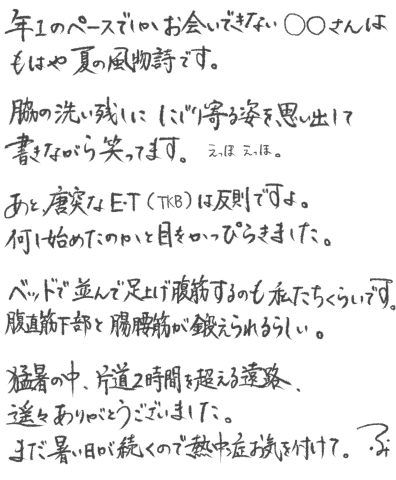 年1のペースでしかお会いできない〇〇さんは
もはや夏の風物詩です。
脇の洗い残しににじり寄る姿を思い出して
書きながら笑ってます。えっほ えっほ。
あと、唐突なE・T(TKB)は反則ですよ。
何し始めたのかと目をかっぴらきました。
ベッドで並んで足上げ腹筋するのも私たちくらいです。
腹直筋下部と腸腰筋が鍛えられるらしい。
猛暑の中、片道2時間を超える遠路、
遥々ありがとうございました。
まだ暑い日が続くので熱中症お気を付けて。ふみ